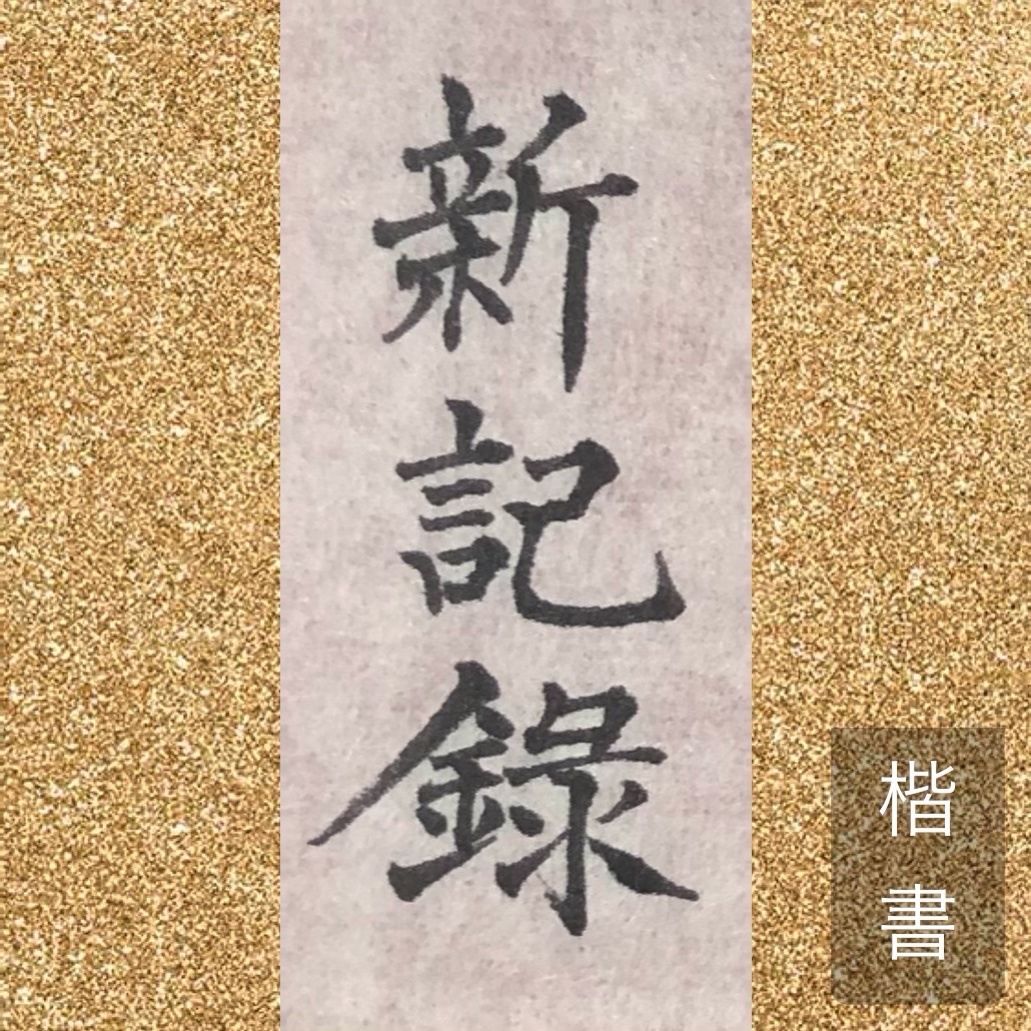 新記錄
楷書